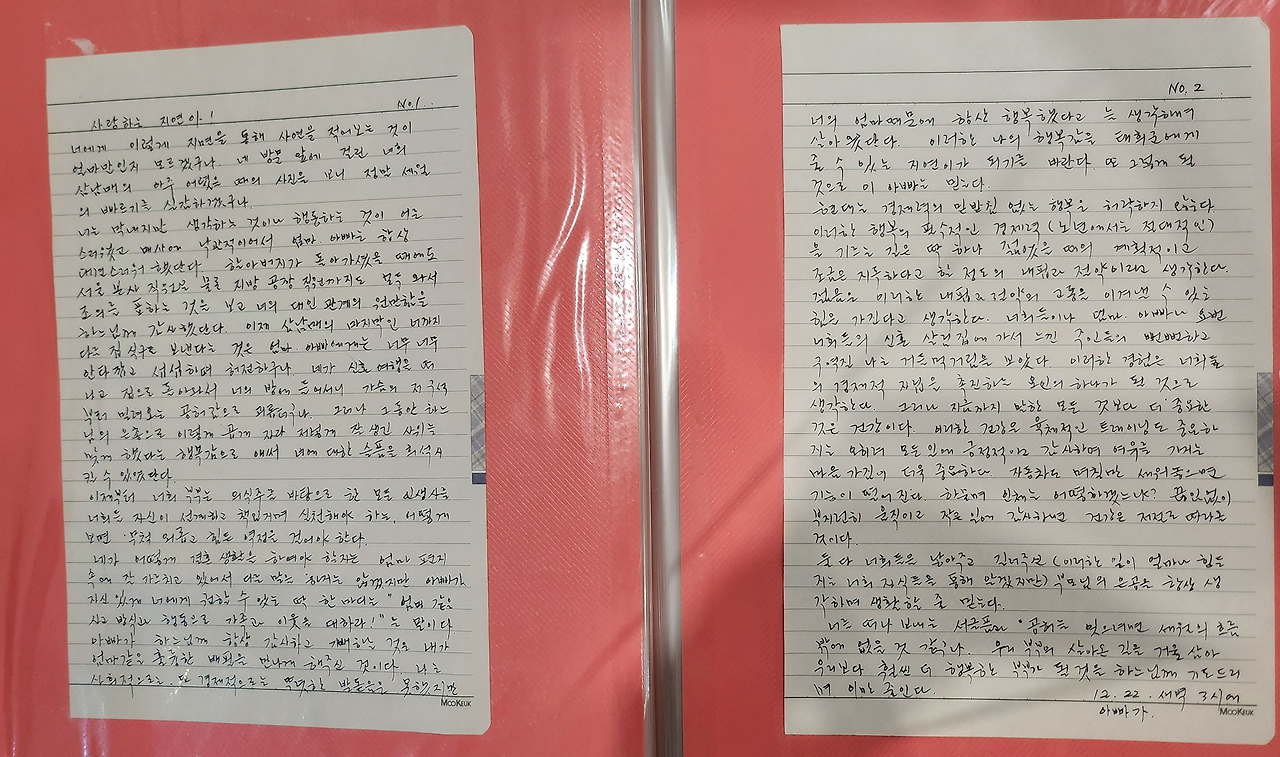 No.1..
사랑하는 지연아!
너에게 이렇게 지면을 통해 사연을 적어보는 것이
얼마만인지 모르겠구나. 네 방문 앞에 걸린 너희
삼남매의 아주 어렸을 때의 사진을 보니 정말 세월
의 빠르기를 실감하겠구나.
너는 막내지만 생각하는 것이나 행동하는 것이 어른
스러웠고 매사에 낙관적이어서 엄마 아빠는 항상
대견스러워 했단다. 할아버지가 돌아가셨을 때에도
서울 본사 직원은 물론 지방 공장 직원까지도 모두 와서
조의를 표하는 것을 보고 너의 대인 관계의 원만함을
하느님께 감사했단다. 이제 삼남매의 마지막인 너까지
다른 집 식구로 보낸다는 것은 엄마 아빠에게는 너무 너무
안타깝고 섭섭하며 허전하구나. 네가 신혼 여행을 떠
나고 집으로 돌아와서 너의 방에 들어서니 가슴의 저 구석
부터 밀려오는 공허감으로 괴롭더구나. 그러나 그동안 하느
님의 은총으로 이렇게 곱게 자라 저렇게 잘 생긴 사위를
맞게 했다는 행복감으로 애써 너에 대한 슬픔을 희석시
킬 수 있었단다.
이제부터 너희 부부는 의식주를 바탕으로 한 모든 인생사를
너희들 자신이 설계하고 책임지며 실천해야 하는, 어떻게
보면 무척 외롭고 힘든 역정을 걸어야 한다.
네가 어떻게 결혼 생활을 하여야 할지는 엄마 편지
속에 잘 가르치고 있어서 다른 말은 하지는 않겠지만 아빠가
자신 있게 너에게 권할 수 있는 딱 한마디는 "엄마 같은
사고 방식과 행동으로 가족과 이웃을 대하라!"는 말이다
아빠가 하느님께 항상 감사하고 기뻐하는 것은 내가
엄마같은 훌륭한 배필을 만나게 해주신 것이다. 나는
사회적으로는 또 경제적으로는 뚜렷한 받돋음은 못했지만
MOOKEUK
No. 2
너의 엄마때문에 항상 행복했다고 는 생각하며
살아 왔단다. 이러한 나의 행복감을 태희군에게
줄 수 있는 지연이가 되기를 바란다. 또 그렇게 될
것으로 이 아빠는 믿는다.
현대는 경제력의 밑받침 없는 행복을 허락하지 않는다.
이러한 행복의 필수적인 경제력 (노년에서는 절대적인)
을 기르는 길은 딱 하나 젊었을 때의 계획적이고
조금은 지독하다고 할 정도의 내핍과 절약이라고 생각한다.
젊음은 이러한 내핍과 절약의 고통을 이겨낼 수 있는
힘을 가진다고 생각한다. 너희들이나 엄마. 아빠나 요번
너희들의 신혼 살림집에 가서 느낀 주인들의 뻔뻔하고
구역질 나는 거들먹거림을 보았다. 이러한 경험은 너희들
의 경제적 자립을 촉진하는 요인의 하나가 될 것으로
생각한다. 그러나 지금까지 말한 모든 것보다 더 중요한
것은 건강이다. 이러한 건강은 육체적인 트레이닝도 중요하
지만 오히려 모든 일에 긍정적이고 감사하며 여유를 가지는
마음 가짐이 더욱 중요하다 자동차도 며칠만 세워두으면
기능이 떨어진다. 하물며 인체는 어떻하겠느냐? 끊임없이
부지런히 움직이고 작은 일에 감사하면 건강은 저절로 따라올
것이다.
둘 다 너희들은 낳아주고 길러주신 (이러한 일이 얼마나 힘든
지는 너희 자식들을 통해 알겠지만) 부모님의 은공을 항상 생
각하며 생활할 줄 믿는다.
너를 떠나 보내는 서글픔과 공허를 잊으려면 세월의 흐름
밖에 없을 것 같구나. 우리 부부의 살아온 길을 거울 삼아
우리보다 훨씬 더 행복한 부부가 될 것을 하느님께 기도드리
며 이만 줄인다.
12. 22. 새벽 3시에
아빠가.
MOOKEUK